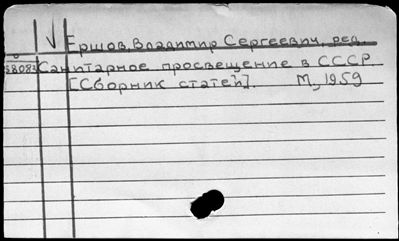 Ершов, Владимир Сергеевич, ред.
Санитарное просвещение в СССР.
[Сборник статей]. М., 1959